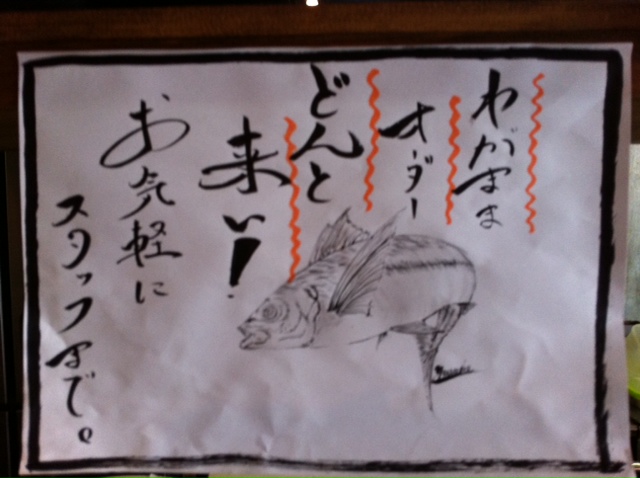 わがまま
オーダー
どんと
来い!
お気軽に
スタッフまで。